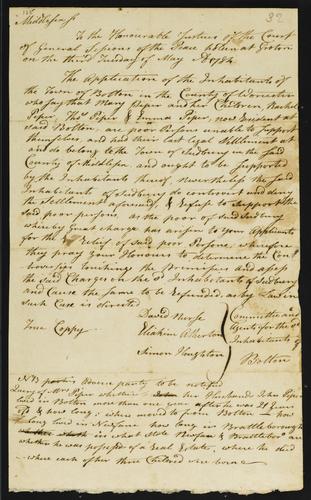 32
Middlesex ss
To the Honourable Justices of the Court
of General Sessions of the Peace holden at Groton
on the third Tuesday of May AD 1784
The Application of the Inhabitants of
the Town of Bolton in the County of Worcester
who say that Mary Piper and her Children, Rachel
Piper, Thos Piper & Emma Piper, now Resident at
said Bolton, are poor Persons unable to support
themselves, and had their last legal Settlement at
and do belong to the Town of Sudbury in the said
County of Middlesex and ought to be supported
by the Inhabitants thereof nevertheless the said
Inhabitants of Sudbury do controvert and deny
the Settlement aforesaid, & refuse to support the
said poor persons, as the poor of said Sudbury
whereby great charge has arisen to your Applicants
for the Relief of said poor Persons, wherefore
they pray your Honours to determine the Cont
roversy touching the Premises and assess
the said Charges on the sd Inhabitants of Sudbury
and Cause the same to be refunded, as by Law in
such Case is directed
David Nurse
Eliakim Atherton
Simon Houghton
Committee and
Agents for the sd
Inhabitants of
Bolton
True Coppy
NB adverse party to be notified
Query of Mrs Piper whether her Husband John Piper
lived in Bolton over one year after he was 21 years
old & how long; where moved to from Bolton
long lived in Newfane how long in Brattleborough
in what State Newfane & Brattlebor are
whether he was possessed of a real Estate, where he died
where each of her three Children were born